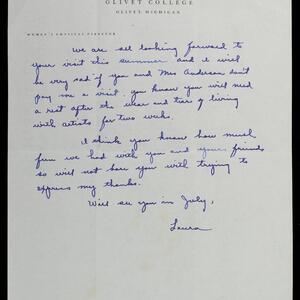 OLIVET COLLEGE
OLIVET, MICHIGAN
WOMEN'S PHYSICAL DIRECTOR
We are all looking forward to
your visit this summer and I will
be very sad if you and Mrs Anderson don't
pay me a visit. You know you will need
a rest after the wear and tear of living
with artists for two weeks.
I think you know how much
fun we had with you and your friends
so will not bore you with trying to
express my thanks.
Will see you in July,
Laura